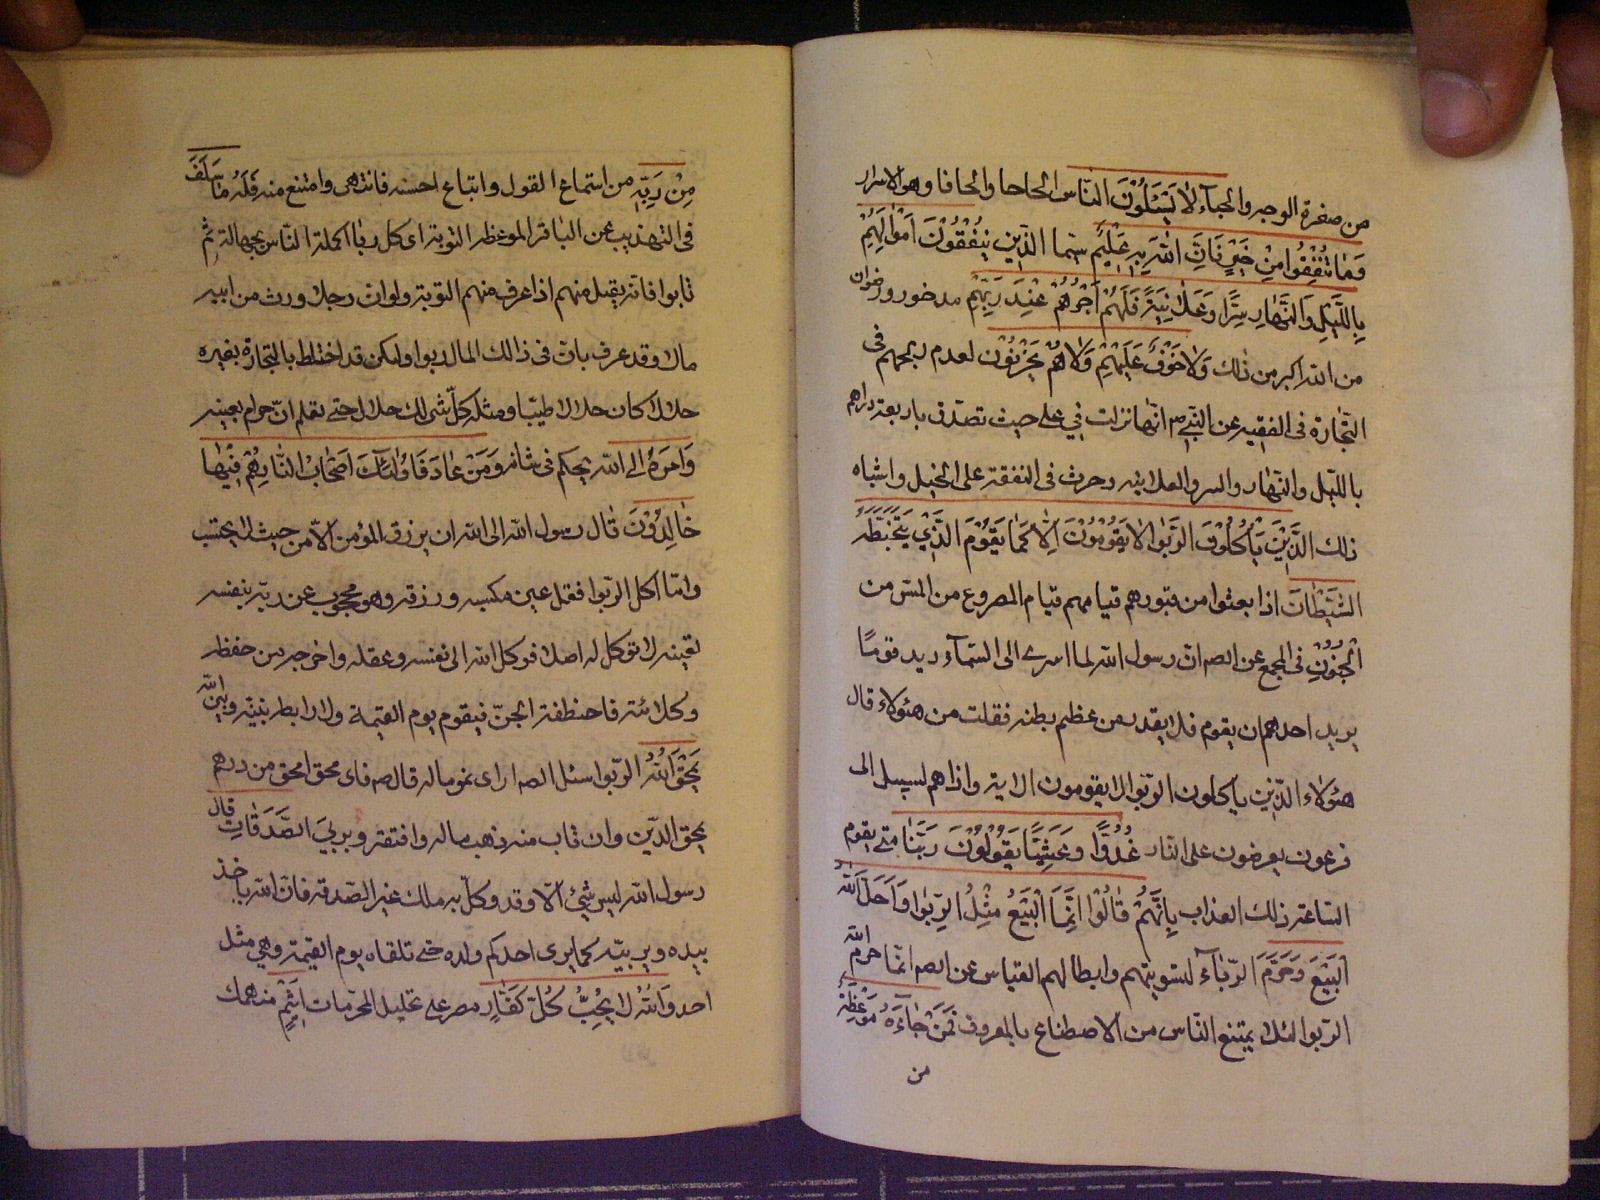 من صفرة الوجه والحياء لا يَسْئَلُونَ الناس الحاحا والحافا وهو الاسرار
وَمَا تُنْفِقُوا مِنْ خَيْرٍ فَاِنَّ اللهَ بِهِ عَلِيمٌ سيما الَّذِينَ يُنْفِقُونَ اَمْوٰالَهُمْ
بِاللَّيْلِ وَالنَّهٰارِ سِرًّا وَعَلانِيَةً فَلَهُمْ اَجْرُهُمْ عِنْدَ رَبِّهِمْ مدخور ورضوان
من الله اكبر من ذلك وَلاٰ خَوْفٌ عَلَيْهِمْ وَلاٰ هُمْ يَحْزَنُونَ لعدم ربحهم فى
التجارة فى الفقيه عن النبي ص انها نزلت في علي حيث تصدق باربعة دراهم
بالليل والنهار والسر والعلانيه وجرت فى النفقة على الخيل واشباه
ذلك الَّذِينَ يَأْكُلُونَ الرِّبَوا لاٰ يَقُومُونَ اِلاّٰ كَمٰا يَقُومُ الَّذِي يَتَخَبَّطُهُ
الشَّيْطَانُ اذا بعثوا من قبورهم قيامهم قيام المصروع من المس من
الْجُنُونِ فى المجمع عن الصه ان رسول الله لما اسرى الى السماء قوما
يريد احدهم ان يقوم فلا يقدر من عظم بطنه فقلت من هئولاء قال
هئولاء الذين يأكلون الربوا لا يقومون الاية واذا هم لسبيل ال
فرعون يعرضون على النار غُدُوًّا وَعَشِيًّا يَقُولُونَ رَبَّنٰا متى يقوم
الساعة ذلك العذاب بِاَنَّهُمْ قٰالُوا اِنَّمَا الْبَيْعُ مِثْلُ الرِّبٰوا وَاَحَلَّ اللهُ
الْبَيْعَ وَحَرَّمَ الربآء لتسويتهم وابطالهم القياس عن الصه انما حرم الله
الربوا لئلا يمتنع الناس من الاصطناع بالمعروف فَمَنْ جٰاءَهُ مَوْعِظَةٌ
من
مِنْ رَبِّهِ من استماع القول واتباع احسنه فانتهى وامتنع منه فَلَهُ مٰا سَلَفَ
فى التهذيب عن الباقر الموعظه التوبة اى كل ربا اكله الناس بجهالة ثم
تابوا فانه يقبل منهم اذا عرف منهم التوبة ولو ان رجلا ورث من ابيه
مالا وقد عرف بان فى ذالك المال ربوا ولكن قد اختلط بالتجارة بغيره
حلالا كان حلالا طيبا ومثله كل شى لك حلال حتى تعلم ان حرام بعينه
وَاَمْرُهُ الى الله يحكم فى شانه وَمَنْ عٰادَ فَاُولٰئِكَ اَصْحٰابُ النَّارِ هُمْ فِيهٰا
خٰالِدُونَ قال رسول الله ابى الله ان يرزق المؤمن الا من حيث لا يحتسب
واما اكل الربوا فقد عين مكسبه ورزقه وهو محجوب عن ربه بنفسه
بعينه لا توكل له اصلا فوكل الله الى نفسه وعقله واخرجه من حفظه
وكلائته فاختطفته الجن فيقوم يوم القيمة ولا رابطه بينه وبين الله
يَمْحَقُ اللهُ الربوا سئل الصه ارى نمو ماله قال صه فاى محق امحق من درهم
يمحق الدين وان تاب منه ذهب ماله وافتقر ويربي الصَّدَقٰاتِ قال
رسول الله ليس شئ الا وقد وكل به ملك غير الصدقه فان الله ياخذ
بيده ويربيه كما يربى احدكم ولده حتى تلقاه يوم القيمة وهي مثل
احد وَاللهُ لاٰ يُحِبُّ كُلَّ كَفّٰارٍ مصر على تحليل المحرمات اَثِيمٍ منهمك